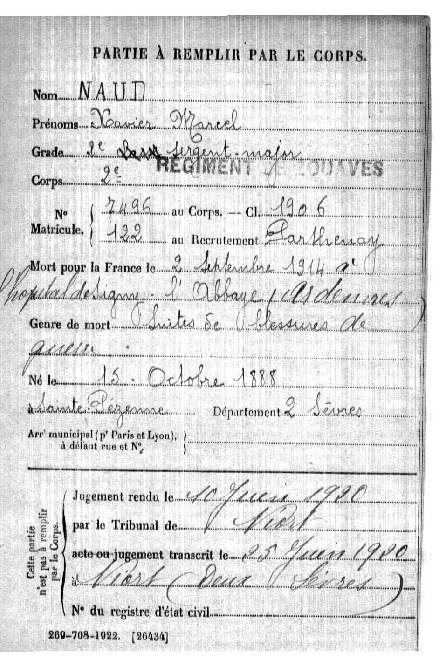 PARTIE À REMPLIR PAR LE CORPS.
Nom NAUD
Prénoms Xavier Marcel
Grade 2e sergent-major
Corps 2e RÉGIMENT DE ZOUAVES
No 7496 au Corps. — Cl. 1906
Matricule. 122 au Recrutement Parthenay
Mort pour la France le 2 Septembre 1914 à
l'hopital de Signy - l'Abbaye (Ardennes)
Genre de mort Suites de blessures de
guerre
Né le 15 - Octobre 1888
à Sainte Pezenne Département 2 Sèvres
Arrt municipal (pr Paris et Lyon),
à défaut rue et No.
Cette partie
n'est pas à remplir
par le Corps.
Jugement rendu le 10 Juin 1920
par le Tribunal de Niort
acte ou jugement transcrit le 25 Juin 1920
à Niort (Deux Sèvres)
No du registre d'état civil
269-708-1922. [26434]